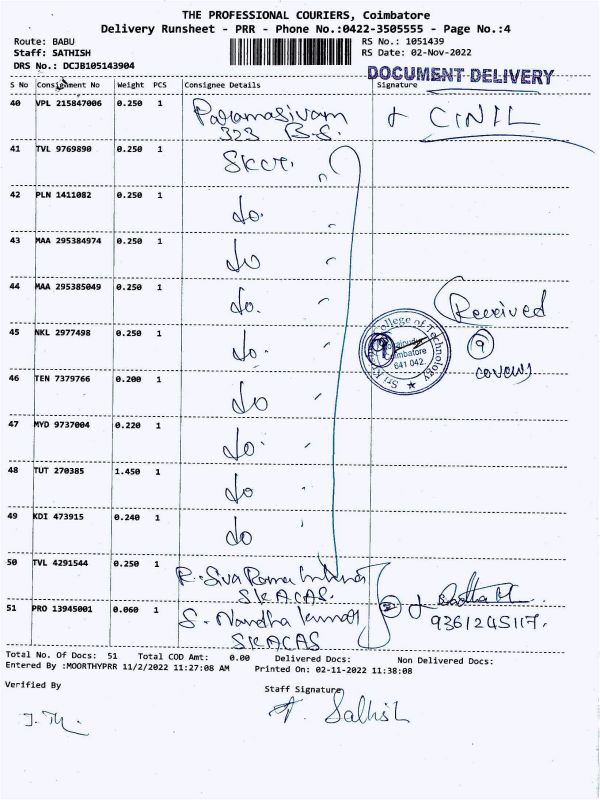 THE PROFESSIONAL COURIERS, Coimbatore
Delivery Runsheet - PRR - Phone No.:0422-3505555 - Page No.:4
Route: BABU
Staff: SATHISH
DRS No.: DCJB105143904
RS No.: 1051439
RS Date: 02-Nov-2022
DOCUMENT DELIVERY
S No Consignment No Weight PCS Consignee Details Signature
40 VPL 215847006 0.250 1 Paramasivam
323 B.S.
CINIL
41 TVL 9769890 0.250 1 SKCT.
42 PLN 1411082 0.250 1 do.
43 MAA 295384974 0.250 1 do
44 MAA 295385049 0.250 1 do.
Received
45 NKL 2977498 0.250 1 do.
9
covers
Sri College of Technology
Coimbatore
641 042.
46 TEN 7379766 0.200 1 do
47 MYD 9737004 0.220 1 do.
48 TUT 270385 1.450 1 do
49 KDI 473915 0.240 1 do
50 TVL 4291544 0.250 1 R. Siva Rama
SKACAS.
51 PRO 13945001 0.060 1 S. Nandha kumar
SKACAS
2
9361245117.
Total No. Of Docs: 51 Total COD Amt: 0.00 Delivered Docs: Non Delivered Docs:
Entered By :MOORTHYPRR 11/2/2022 11:27:08 AM Printed On: 02-11-2022 11:38:08
Verified By
Staff Signature
Sathish